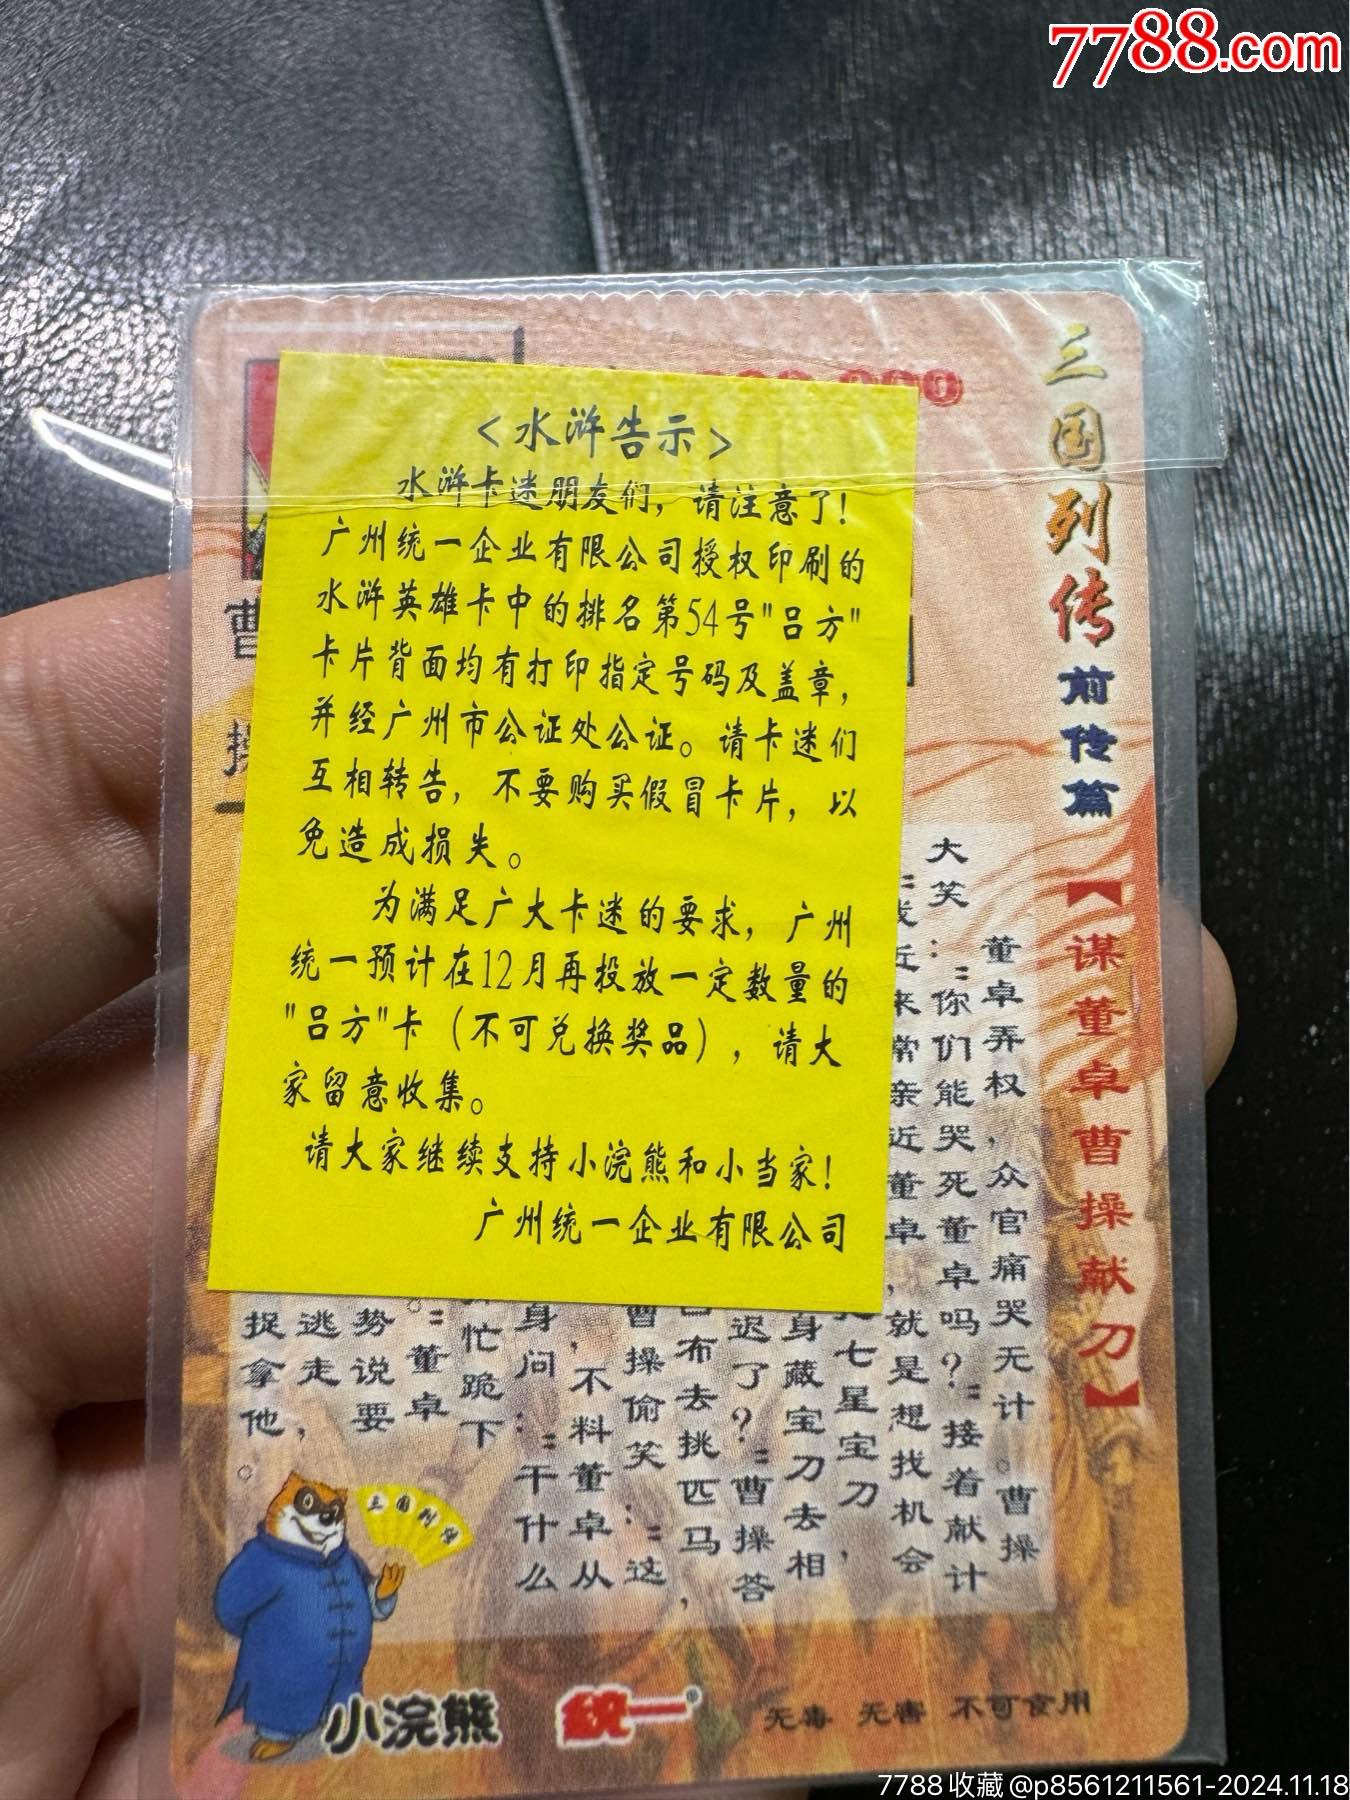 7788.com
<水浒告示>
水浒卡迷朋友们，请注意了！
广州统一企业有限公司授权印刷的
水浒英雄卡中的排名第54号"吕方"
卡片背面均有打印指定号码及盖章，
并经广州市公证处公证。请卡迷们
互相转告，不要购买假冒卡片，以
免造成损失。
为满足广大卡迷的要求，广州
统一预计在12月再投放一定数量的
"吕方"卡（不可兑换奖品），请大
家留意收集。
请大家继续支持小浣熊和小当家！
广州统一企业有限公司
三国列传
前传篇
【谋董卓曹操献刀】
董卓弄权，众官痛哭无计。曹操
大笑："你们能哭死董卓吗？"接着献计
近来常亲近董卓，就是想找机会
七星宝刀，
身藏宝刀去相
迟了？"曹操答
布去挑匹马，
曹操偷笑："这
，不料董卓从
身问："干什么
忙跪下
。"董卓
势说要
逃走，
捉拿他。
曹
三国列传
小浣熊
统一®
无毒 无害 不可食用
7788收藏@p8561211561-2024.11.18